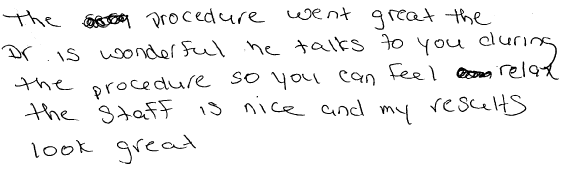 the procedure went great the
Dr is wonderful he talks to you during
the procedure so you can feel relax
the staff is nice and my results
look great